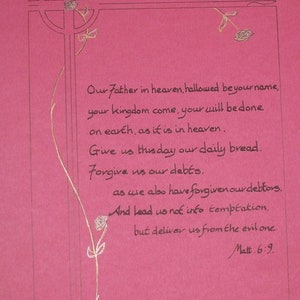 Our Father in heaven, hallowed be your name,
your kingdom come, your will be done
on earth, as it is in heaven.
Give us this day our daily bread.
Forgive us our debts.
as we also have forgiven our debtors.
And lead us not into temptation
but deliver us from the evil one.
Matt. 6:9.